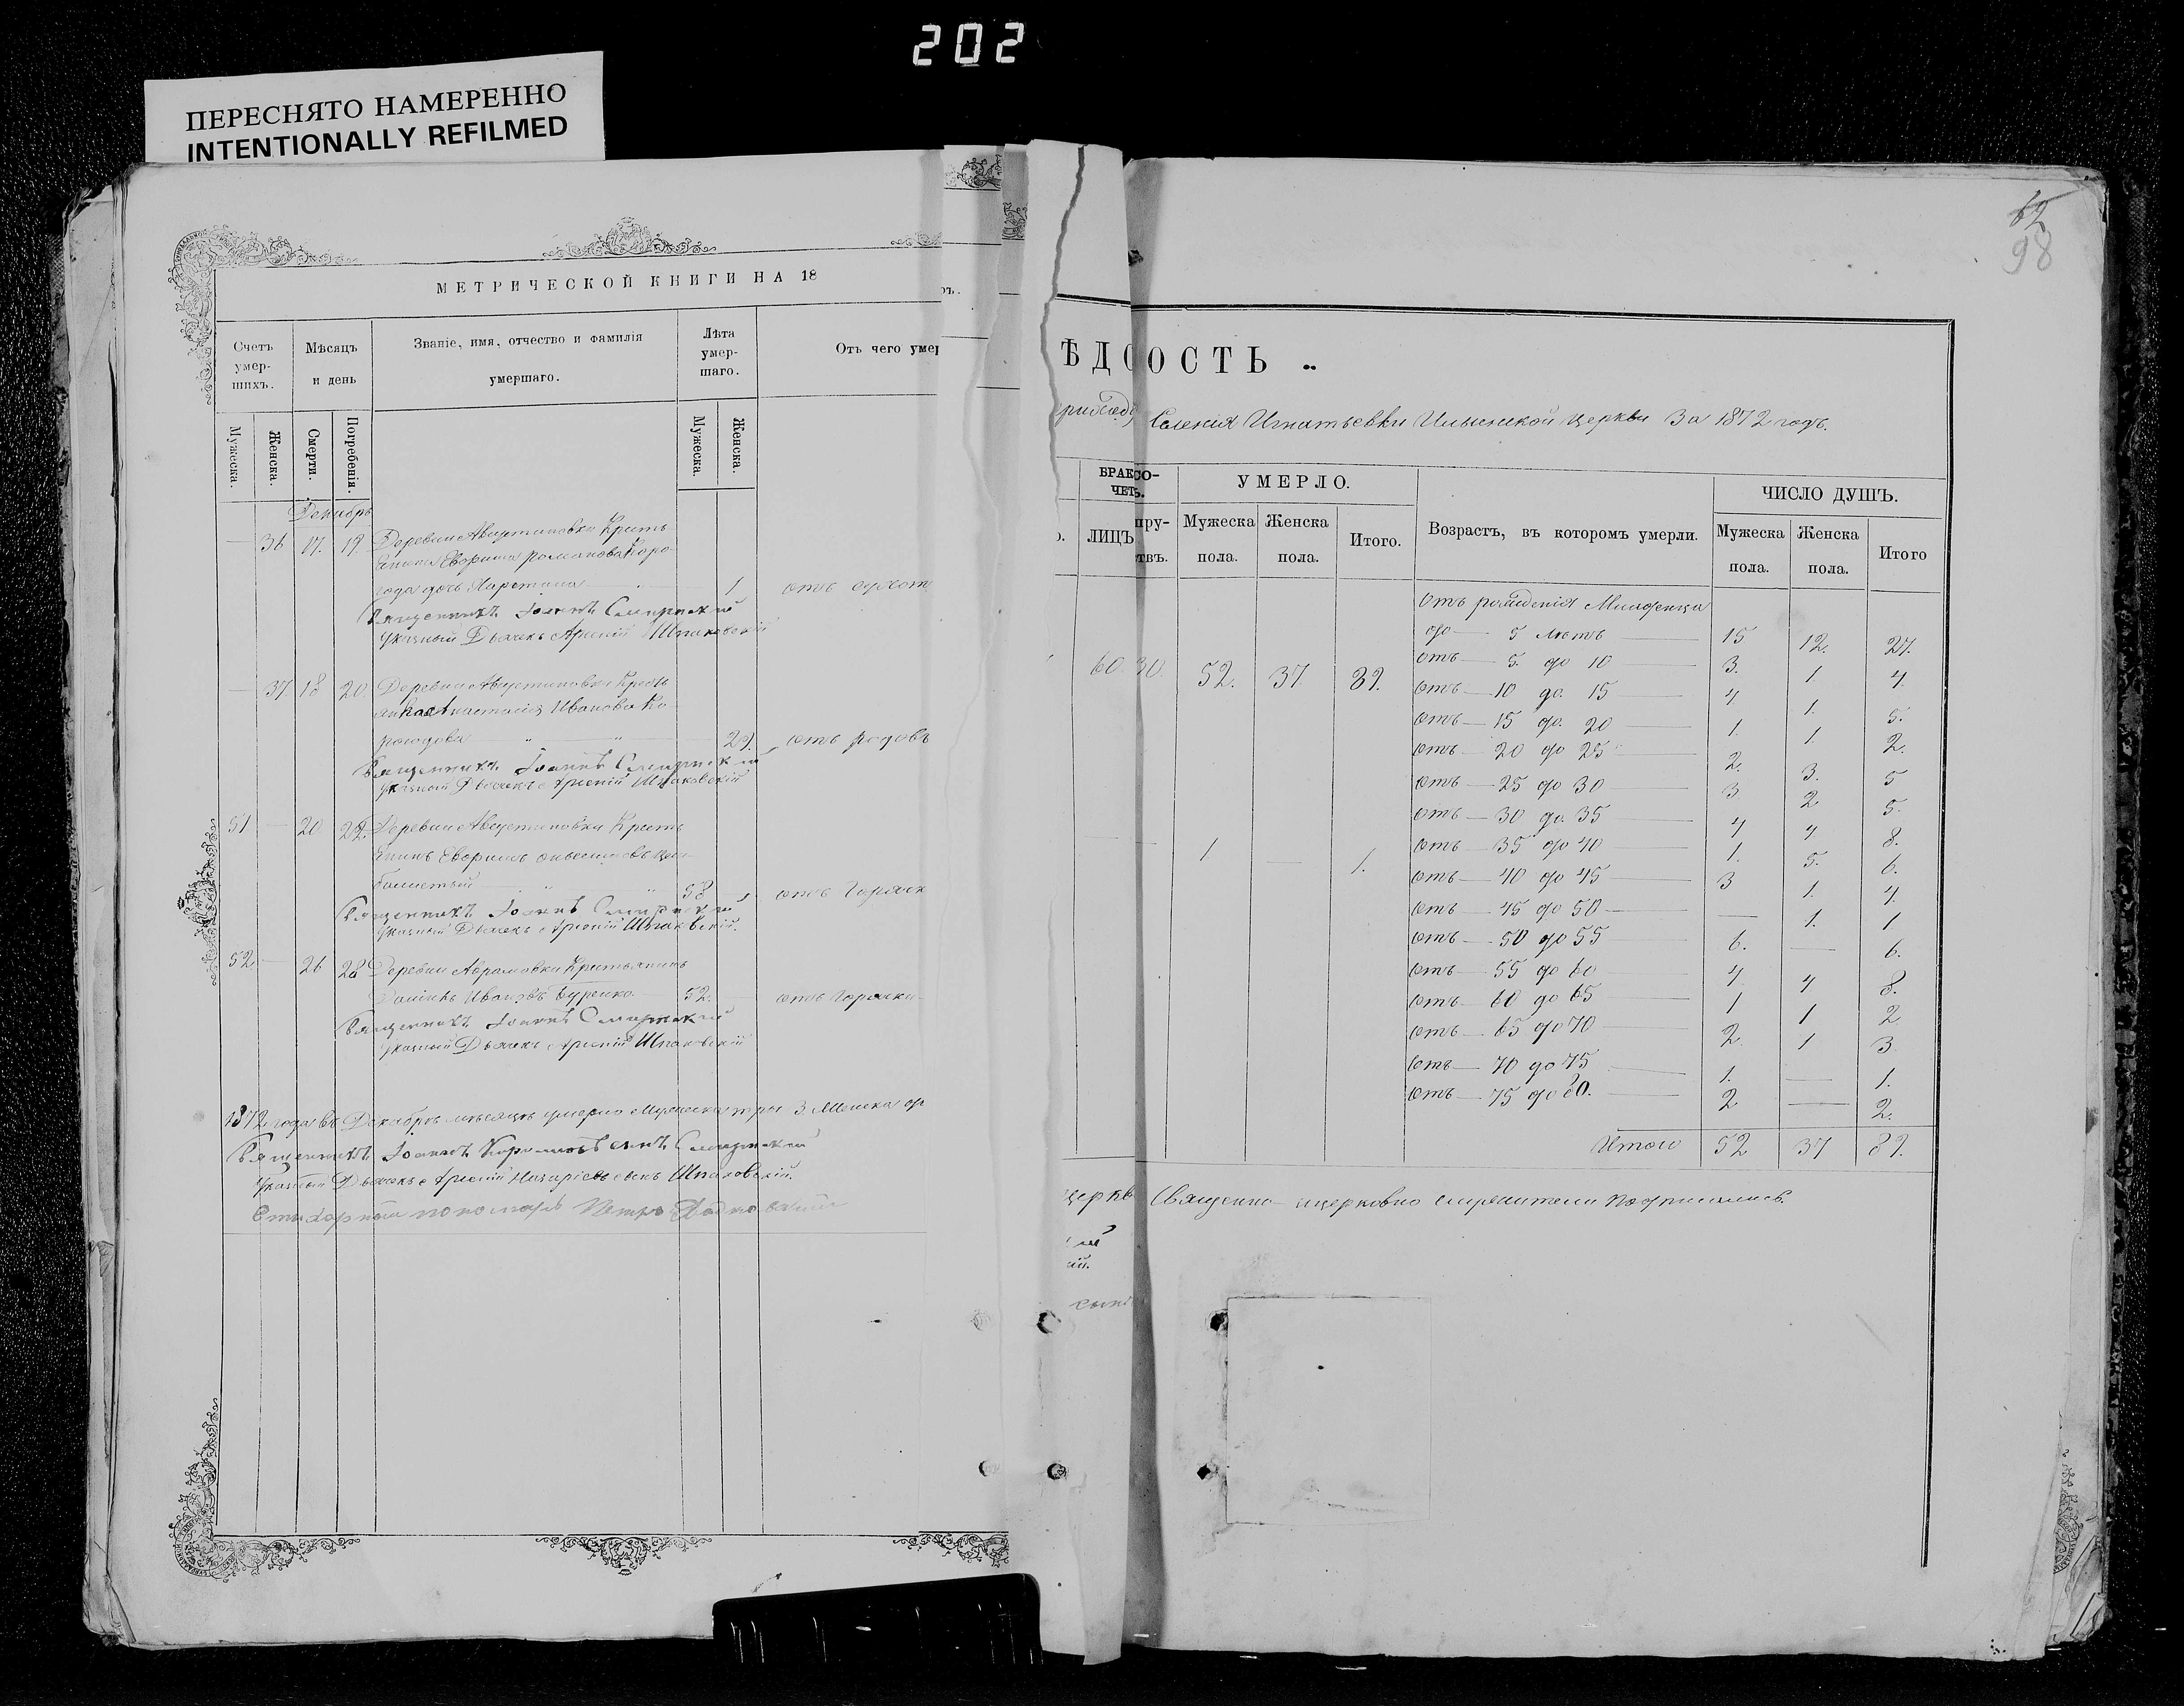 202
ПЕРЕСНЯТО НАМЕРЕННО
INTENTIONALLY REFILMED
МЕТРИЧЕСКОЙ КНИГИ НА 18
Счетъ умершихъ.
Мѣсяцъ и день
Званіе, имя, отчество и фамилія умершаго.
Лѣта умершаго.
Отъ чего умер
Мужеска.
Женска.
Смерти.
Погребенія.
Мужеска.
Женска.
Декабрь
36 17. 19 Деревни Августиновки Кресть
Романова Коро
года дочь 1 отъ сухот
Священникъ Іоаннъ
Указный Дьячекъ Арсеній Шпаковскій
37 18 20 Деревни Августиновки Кресть
янка Анастасія Иванова Ко
рогодова 29. отъ родовъ
Священникъ Іоаннъ
Указный Дьячекъ Арсеній Шпаковскій
51 20 22 Деревни Августиновки Кресть
58 отъ Горячк
Священникъ Іоаннъ
Указный Дьячекъ Арсеній Шпаковскій.
52 26 28 Деревни Аврамовки Крестьянинъ
Ивановъ Буренко 52. отъ горячки
Священникъ Іоаннъ
Указный Дьячекъ Арсеній Шпаковскій
1872 года въ Декабрѣ мѣсяцѣ умерло Мужеска три 3. Женска
Священникъ Іоаннъ
Указный Дьячекъ Арсеній Назаріевъ сынъ Шпаковскій.
Стихарный пономарь Петръ
62
98
ѢДОСТЬ
Селенія Игнатьевки Ильинской Церкви За 1872 годъ.
БРАКОСО-
ЧЕТ.
УМЕРЛО.
Возрастъ, въ которомъ умерли.
ЧИСЛО ДУШЪ.
ЛИЦЪ
пру-
твъ.
Мужеска пола.
Женска пола.
Итого.
Мужеска пола.
Женска пола.
Итого
Отъ рожденія Младенца
до 5 лѣтъ 15 12. 27.
отъ 5. до 10 3. 1 4
60. 30. 52. 37 89.
отъ 10 до 15 4 1. 5.
отъ 15 до 20 1. 1 2.
отъ 20 до 25 2. 3. 5
отъ 25 до 30 3 2 5.
отъ 30 до 35 4 4 8.
1 — 1.
отъ 35 до 40 1. 5. 6.
отъ 40 до 45 3 1. 4.
отъ 45 до 50 — 1. 1
отъ 50 до 55 6. — 6.
отъ 55 до 60 4 4 8.
отъ 60 до 65 1 1 2
отъ 65 до 70 2. 1 3.
отъ 70 до 75 1. — 1.
отъ 75 до 80. 2 — 2.
Итого 52 37 89.
церкв Священно-ицерковно служители подписались.